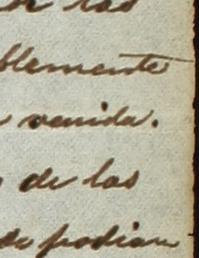 de las
blemente
venida.
de las
de podian